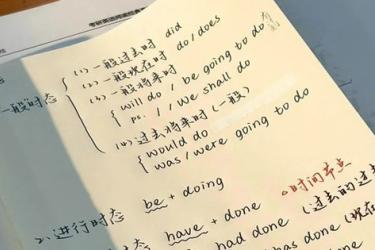 考研英语阅读经典
一般时态
(1) 一般过去时 did
(2) 一般现在时 do/does
(3) 一般将来时
will do / be going to do
I / We shall do
(4) 过去将来时 (一般)
would do
was/were going to do
be + doing
时间节点
2、进行时态
have + done
had done (过去的过去
have done (现在